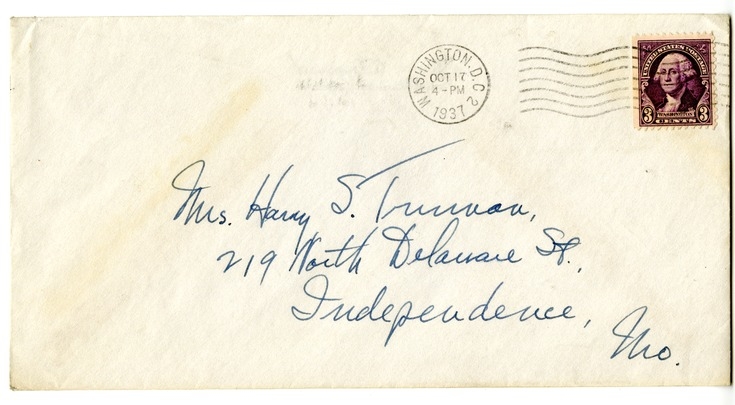 WASHINGTON, D.C. 2
OCT 17
4-PM
1937
UNITED STATES POSTAGE
3 WASHINGTON 3
CENTS
Mrs. Harry S. Truman,
219 North Delaware St.,
Independence,
Mo.